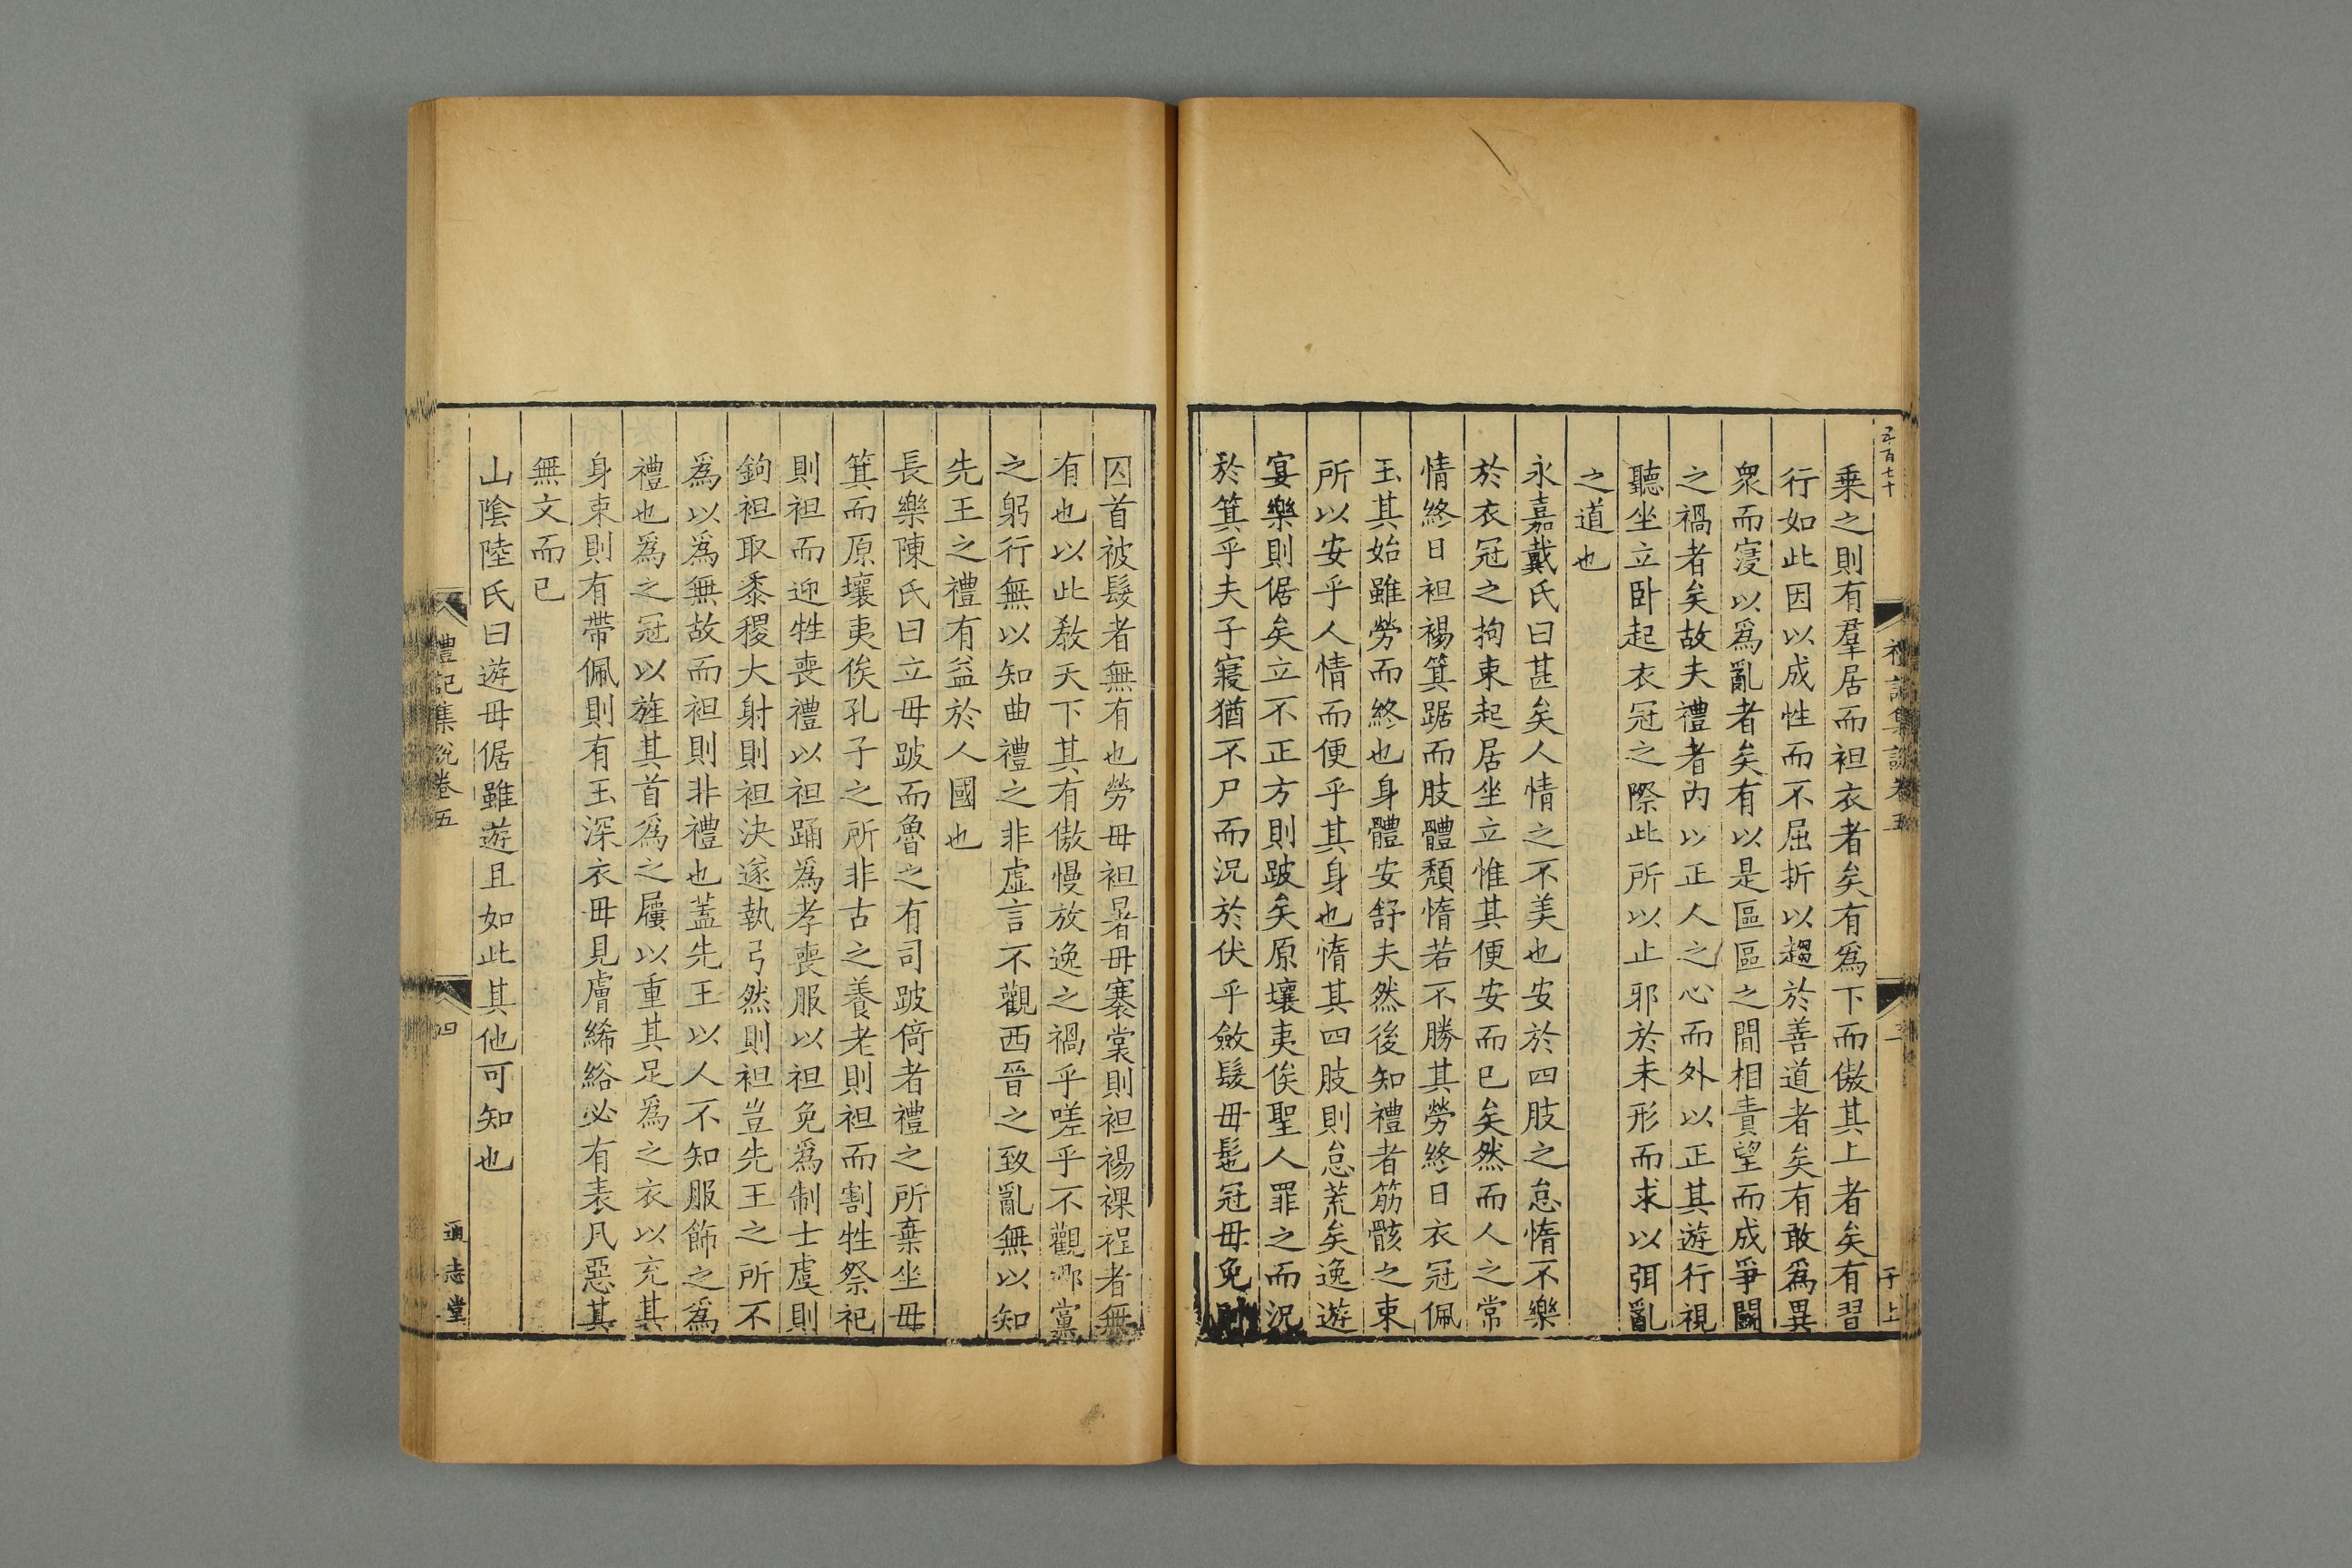 五百七十
禮記集說卷五
三
于上
乗之則有羣居而袒衣者矣有爲下而傲其上者矣有習
行如此因以成性而不屈折以趨於善道者矣有敢爲異
衆而寖以爲亂者矣有以是區區之間相責望而成爭鬪
之禍者矣故夫禮者內以正人之心而外以正其遊行視
聽坐立卧起衣冠之際此所以止邪於未形而求以弭亂
之道也
永嘉戴氏曰甚矣人情之不美也安於四肢之怠惰不樂
於衣冠之拘束起居坐立惟其便安而已矣然而人之常
情終日袒裼箕踞而肢體頹惰若不勝其勞終日衣冠佩
玉其始雖勞而終也身體安舒夫然後知禮者筋骸之束
所以安乎人情而便乎其身也惰其四肢則怠荒矣逸遊
宴樂則倨矣立不正方則跛矣原壤夷俟聖人罪之而況
於箕乎夫子寢猶不尸而況於伏乎斂髮毋髢冠毋免則
囚首被髮者無有也勞毋袒暑毋褰裳則袒裼裸裎者無
有也以此敎天下其有傲慢放逸之禍乎嗟乎不觀鄉黨
之躬行無以知曲禮之非虛言不觀西晉之致亂無以知
先王之禮有益於人國也
長樂陳氏曰立毋跛而魯之有司跛倚者禮之所棄坐毋
箕而原壤夷俟孔子之所非古之養老則袒而割牲祭祀
則袒而迎牲喪禮以袒踊爲孝喪服以袒免爲制士虞則
鉤袒取黍稷大射則袒決遂執弓然則袒豈先王之所不
爲以爲無故而袒則非禮也蓋先王以人不知服飾之爲
禮也爲之冠以旌其首爲之屨以重其足爲之衣以充其
身束則有帶佩則有玉深衣毋見膚絺綌必有表凡惡其
無文而已
山隂陸氏曰遊毋倨雖遊且如此其他可知也
禮記集說卷五
四
通志堂